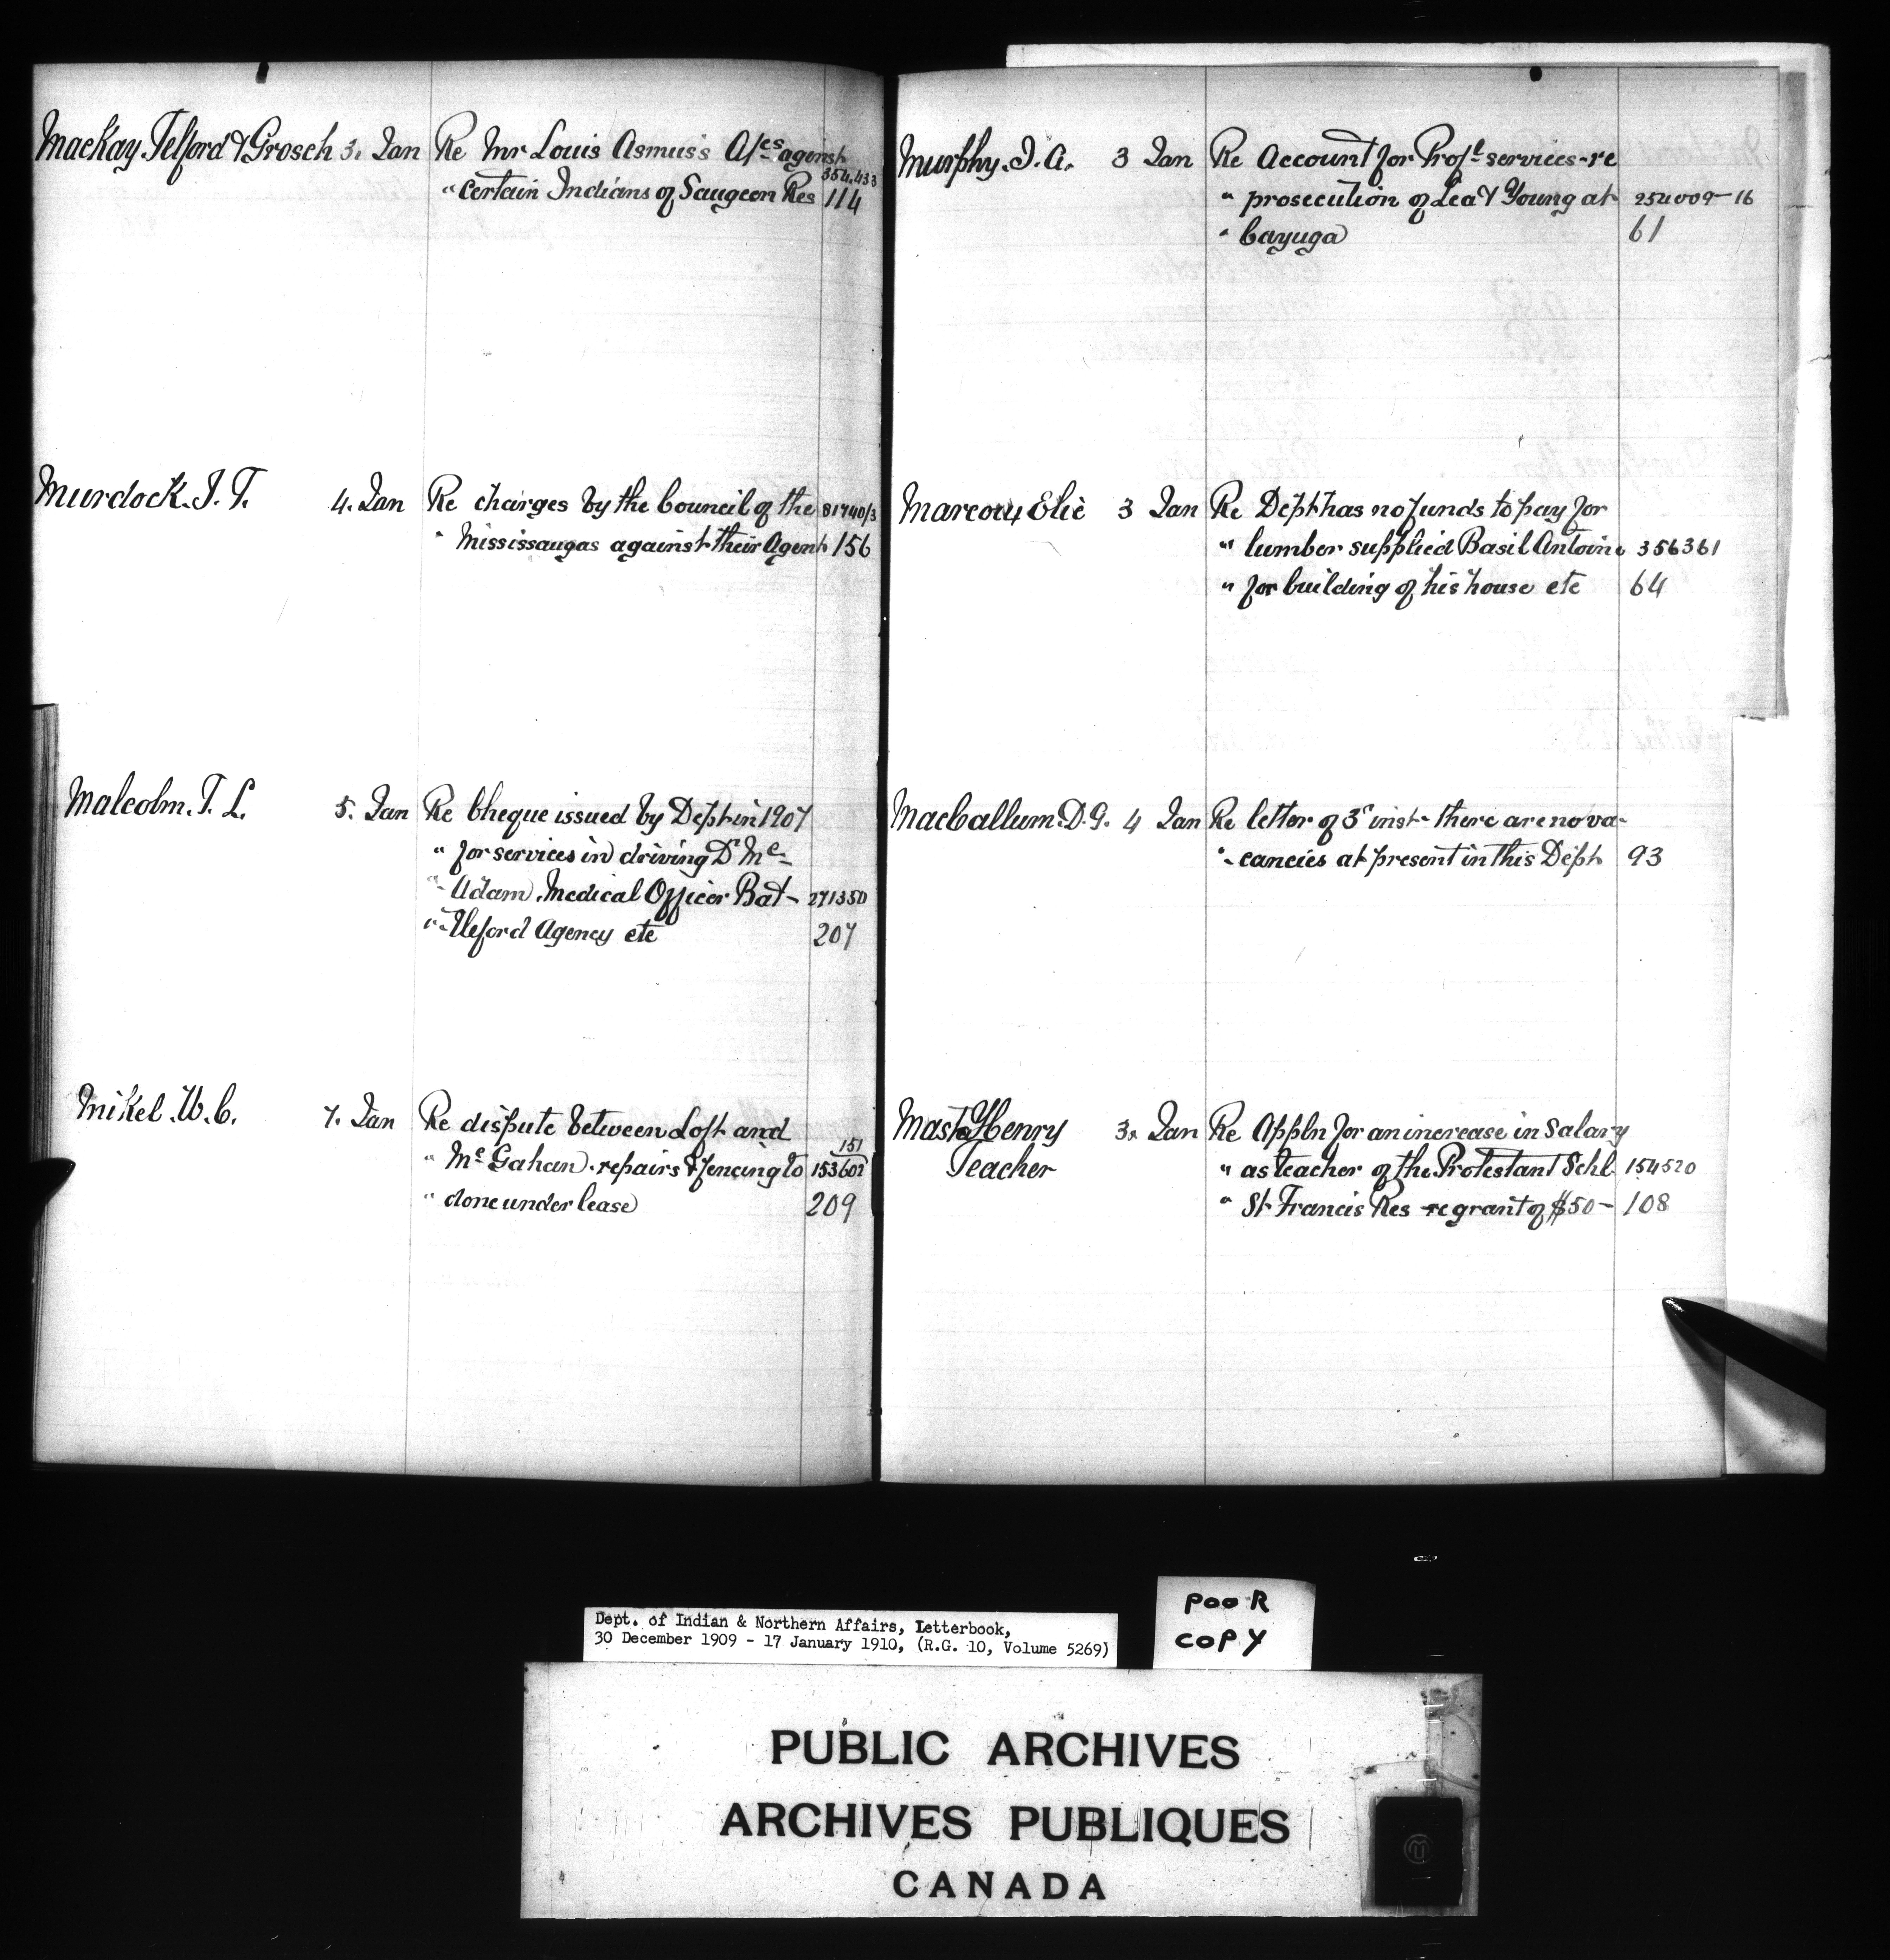 Mackay. Telford & Grosch 3. Jan Re Mr Louis Asmuss A/cs against 354.433
" certain Indians of Saugeon Res 114
Murdock. J. T. 4. Jan Re charges by the Council of the 81740/3
" Mississaugas against their Agent 156
Malcolm. T. L. 5. Jan Re Cheque issued by Dept in 1907
" for services in driving Dr Mc-
"- Adam. Medical Officer Bat- 271350
"- tleford Agency etc 207
Mikel. W. C. 7. Jan Re dispute between Loft and 151
" Mc Gahan. repairs & fencing to 153602
" done under lease 209
Murphy. J. A. 3 Jan Re Account for Profl services - re
" prosecution of Lea & Young at 254009-16
" Cayuga 61
Marcoux Elie 3 Jan Re Dept has no funds to pay for
" lumber supplied Basil Antoine 356361
" for building of his house etc 64
MacCallum. D. G. 4 Jan Re letter of 3r inst- there are no va-
"- cancies at present in this Dept 93
Masta Henry 3. Jan Re Appln for an increase in Salary
Teacher " as teacher of the Protestant Schl 154520
" St Francis Res re grant of $50- 108
Dept. of Indian & Northern Affairs, Letterbook,
30 December 1909 - 17 January 1910, (R.G. 10, Volume 5269)
POOR
COPY
PUBLIC ARCHIVES
ARCHIVES PUBLIQUES
CANADA